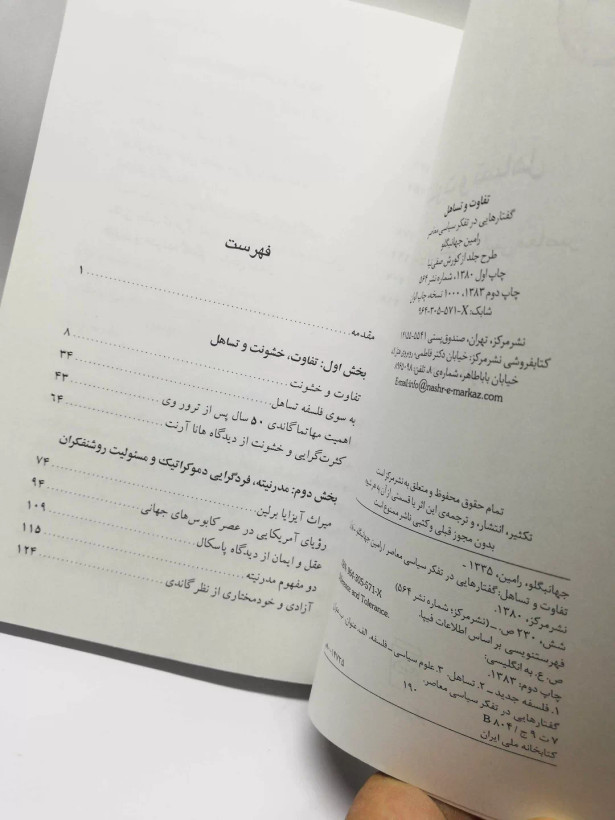 تفاوت و تساهل
گفتارهایی در تفکر سیاسی معاصر
رامین جهانبگلو
طرح جلد از کورش صفی‌نیا
چاپ اول ۱۳۸۰، شماره نشر ۵۶۴
چاپ دوم ۱۳۸۳، ۱۰۰۰ نسخه، چاپ
شابک: X-۵۷۱-۳۰۵-۹۶۴
نشرمرکز، تهران، صندوق‌پستی ۵۵۴۱-۱۴۱۵۵
کتابفروشی نشرمرکز: خیابان دکتر فاطمی، روبروی هتل لاله
خیابان باباطاهر، شماره‌ی ۸، تلفن:
Email:info@nashr-e-markaz.com
تمام حقوق محفوظ و متعلق به نشرمرکز است
تکثیر، انتشار، و ترجمه‌ی این اثر یا قسمتی از آن به هر شیوه
بدون مجوز قبلی و کتبی ناشر ممنوع است
جهانبگلو، رامین، ۱۳۳۵ -
تفاوت و تساهل: گفتارهایی در تفکر سیاسی معاصر / رامین جهانبگلو
نشرمرکز، ۱۳۸۰.
شش، ۲۳۰ ص. ــ (نشرمرکز؛ شماره نشر ۵۶۴)
964-305-571-X
فهرستنویسی بر اساس اطلاعات فیپا.
ص. ع. به انگلیسی:
and Tolerance.
چاپ دوم: ۱۳۸۳.
۱. فلسفه جدید ــ ۲. تساهل. ۳. علوم سیاسی ــ فلسفه. الف. عنوان. ب. عنوان:
گفتارهایی در تفکر سیاسی معاصر.
۱۹۰
۷ ت ۹ ج / B ۸۰۴
کتابخانه ملی ایران
فهرست
مقدمه ۱
بخش اول: تفاوت، خشونت و تساهل
تفاوت و خشونت ۸
به سوی فلسفه تساهل ۳۴
اهمیت مهاتما گاندی ۵۰ سال پس از ترور وی ۴۳
کثرت‌گرایی و خشونت از دیدگاه هانا آرنت ۶۴
بخش دوم: مدرنیته، فردگرایی دموکراتیک و مسئولیت روشنفکران
میراث آیزایا برلین ۷۴
رؤیای آمریکایی در عصر کابوس‌های جهانی ۹۴
عقل و ایمان از دیدگاه پاسکال ۱۰۹
دو مفهوم مدرنیته ۱۱۵
آزادی و خودمختاری از نظر گاندی ۱۲۴